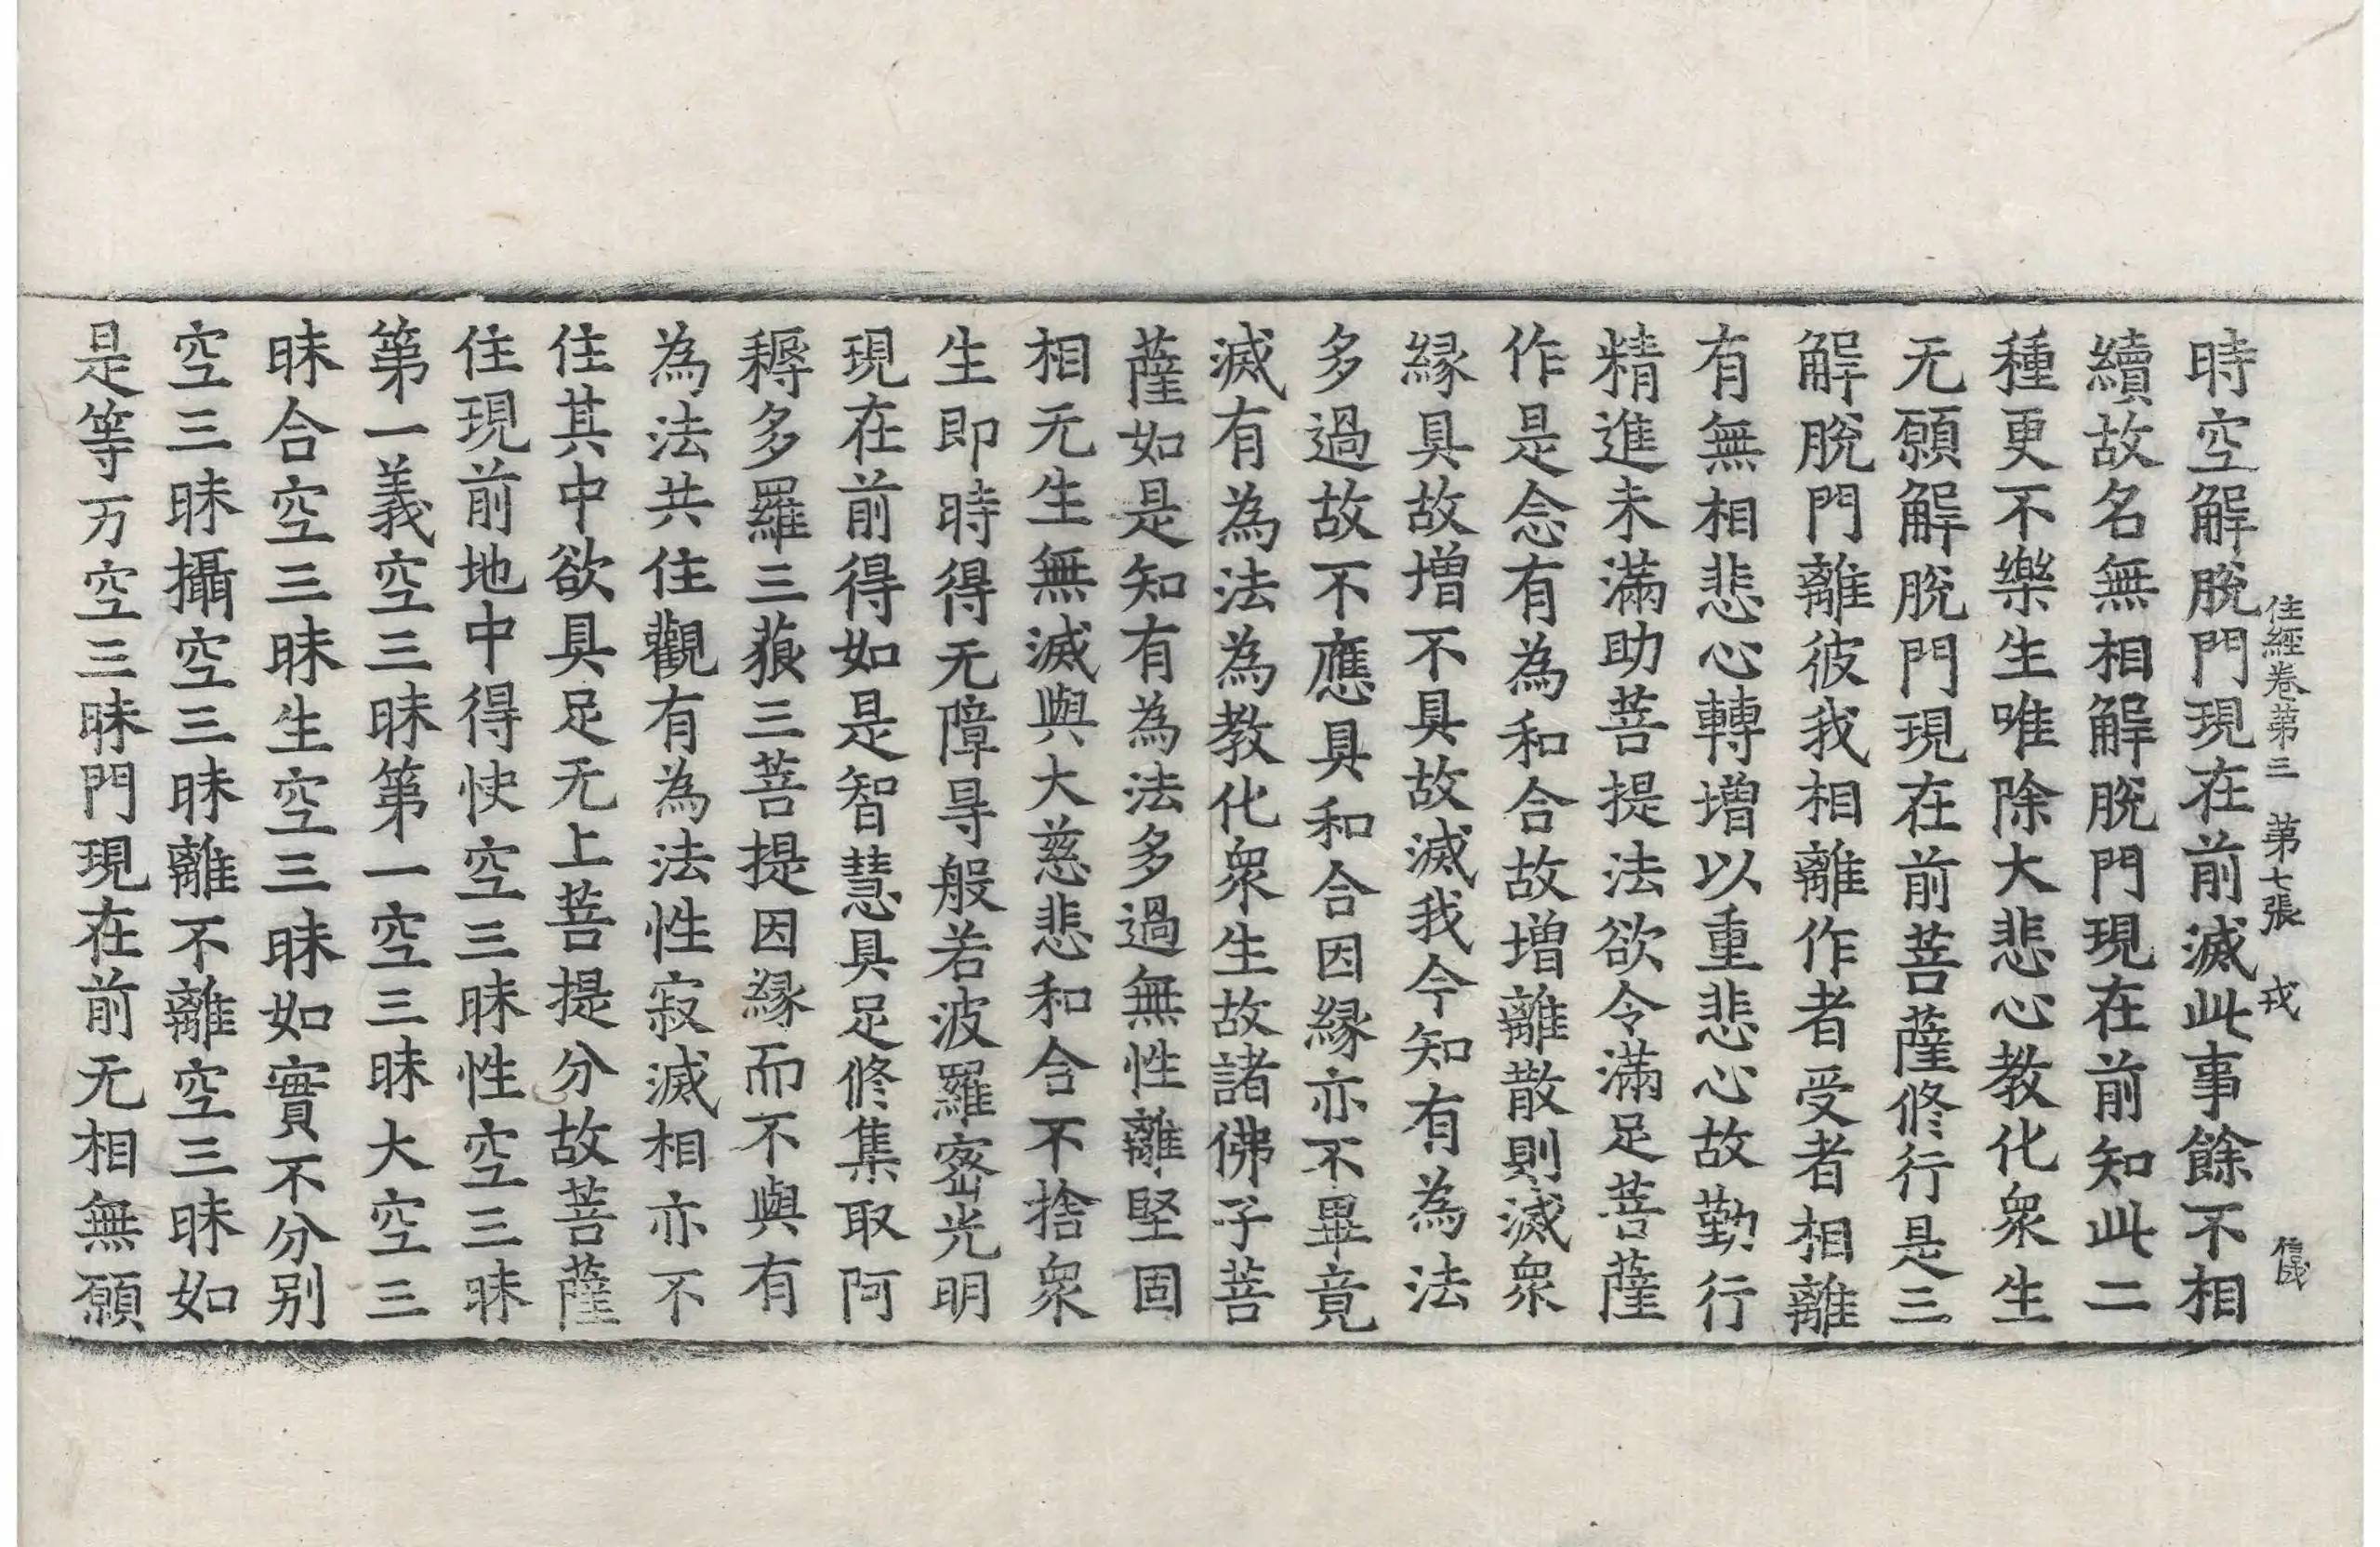 住經卷第三　第七張　戎　信成
時空解脫門現在前滅此事餘不相
續故名無相解脫門現在前知此二
種更不樂生唯除大悲心教化衆生
无願解脫門現在前菩薩修行是三
解脫門離彼我相離作者受者相離
有無相悲心轉增以重悲心故勤行
精進未滿助菩提法欲令滿足菩薩
作是念有為和合故增離散則滅衆
緣具故增不具故滅我今知有為法
多過故不應具和合因緣亦不畢竟
滅有為法為教化衆生故諸佛子菩
薩如是知有為法多過無性離堅固
相无生無滅與大慈悲和合不捨衆
生即時得无障㝵般若波羅蜜光明
現在前得如是智慧具足修集取阿
耨多羅三藐三菩提因緣而不與有
為法共住觀有為法性寂滅相亦不
住其中欲具足无上菩提分故菩薩
住現前地中得快空三昧性空三昧
第一義空三昧第一空三昧大空三
昧合空三昧生空三昧如實不分別
空三昧攝空三昧離不離空三昧如
是等万空三昧門現在前无相無願